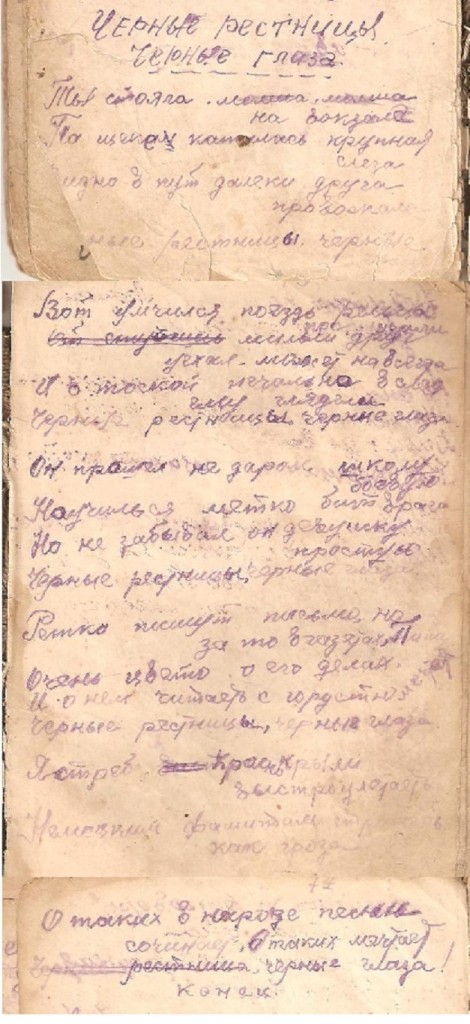 Черные рестницы
Черные глаза
Ты стояла молша, молша
на вокзале
По щекам каталась крупная
слеза
видно в пут далеки друга
провожала
ные рестницы черные
Вот умчился поездь рельсы
милый друг
уехал может навсегда
И в тоской печально в след
ему глядели
Черные рестницы, черные глаза
Он прошел не даром школу
боевую
Научилься метко бить врага
Но не забывал он девушку
простую
Черные рестницы, черные глаза
Ретко пишут письма, но
за то в газетах
Очень цвето о его делах.
И о нем читаеть с гордостю
Черные рестницы, черные глаза
Ястреб крыли
быстро
Немецким фашистам
как гроза
О таких в народе песни
сочиняе, О таких мечтает
рестница, черные глаза!
Конец.